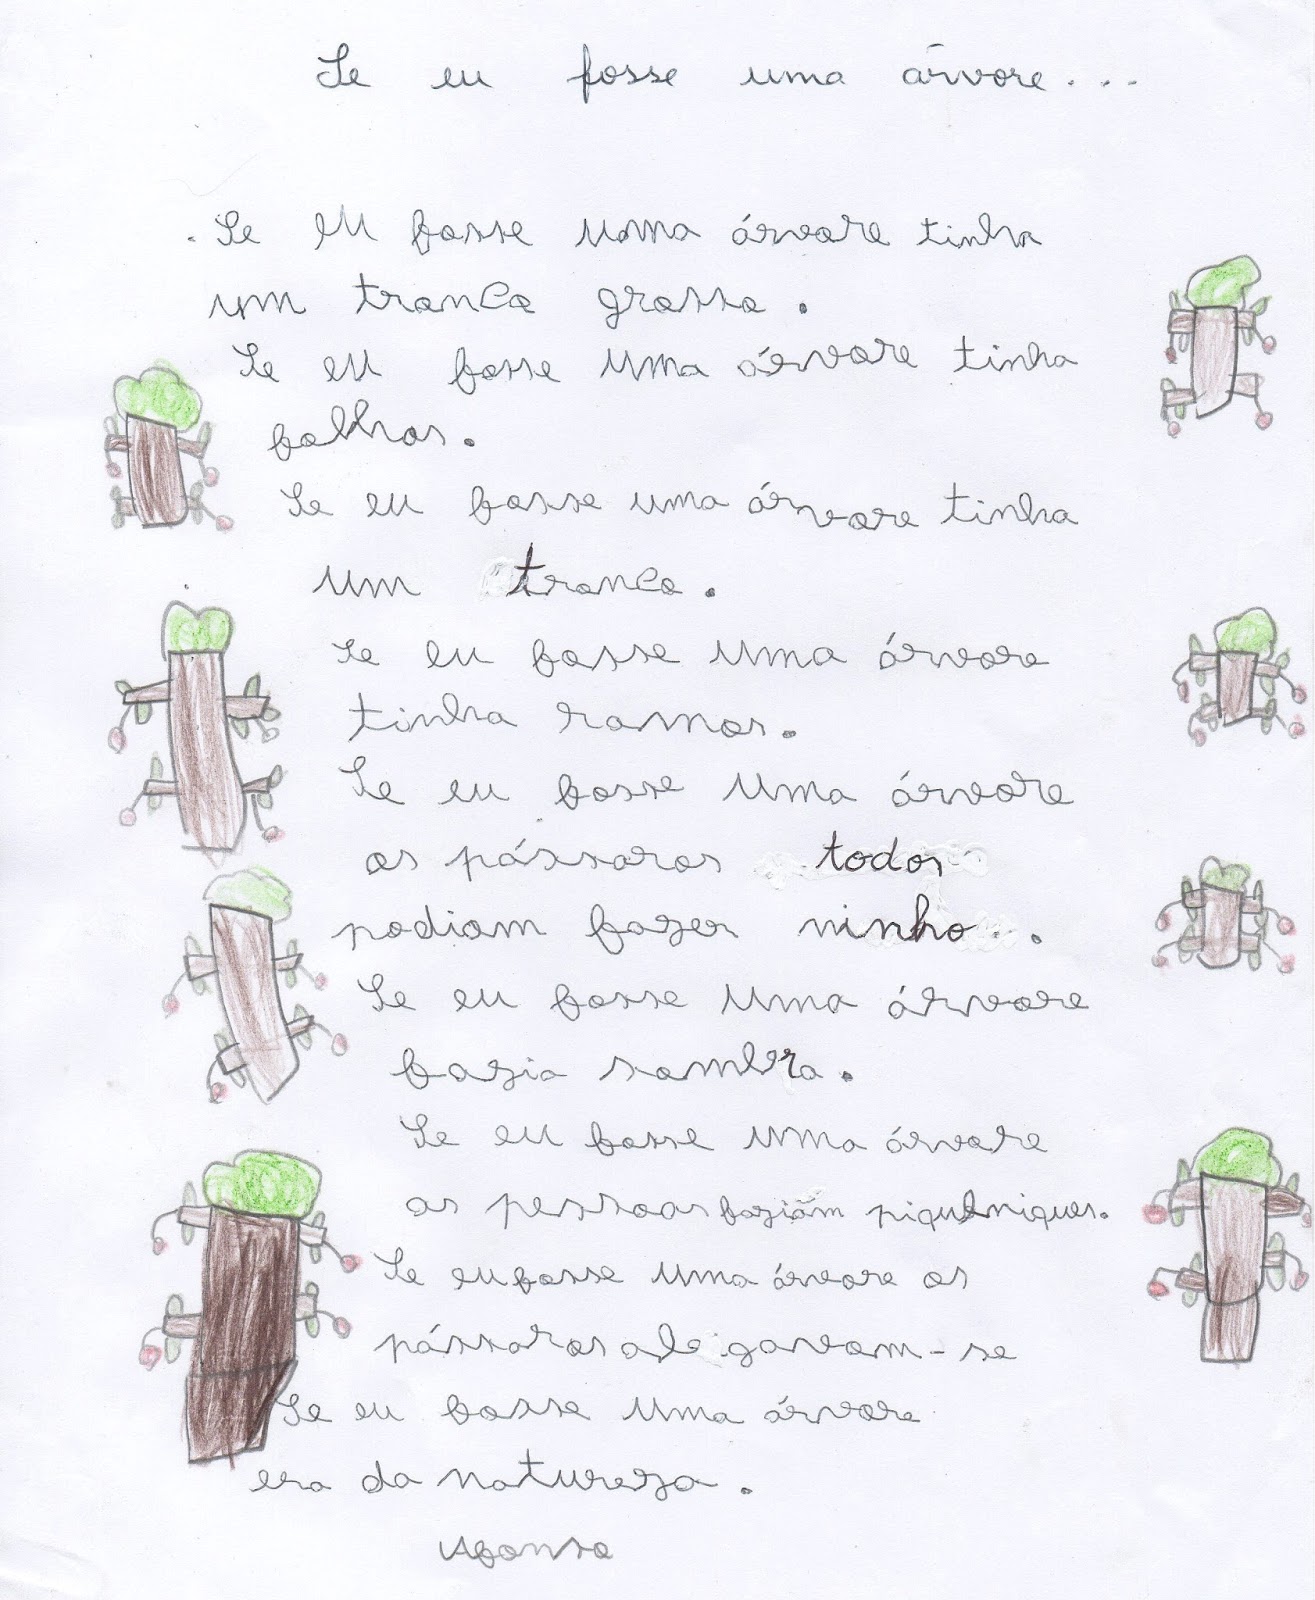 Se eu fosse uma árvore...
Se eu fosse uma árvore tinha
um tronco grosso.
Se eu fosse uma árvore tinha
folhas.
Se eu fosse uma árvore tinha
um tronco.
Se eu fosse uma árvore
tinha ramos.
Se eu fosse uma árvore
os pássaros todos
podiam fazer ninho..
Se eu fosse uma árvore
fazia sombra.
Se eu fosse uma árvore
as pessoas faziam piqueniques.
Se eu fosse uma árvore os
pássaros alegavam-se
Se eu fosse uma árvore
era da natureza.
Afonso